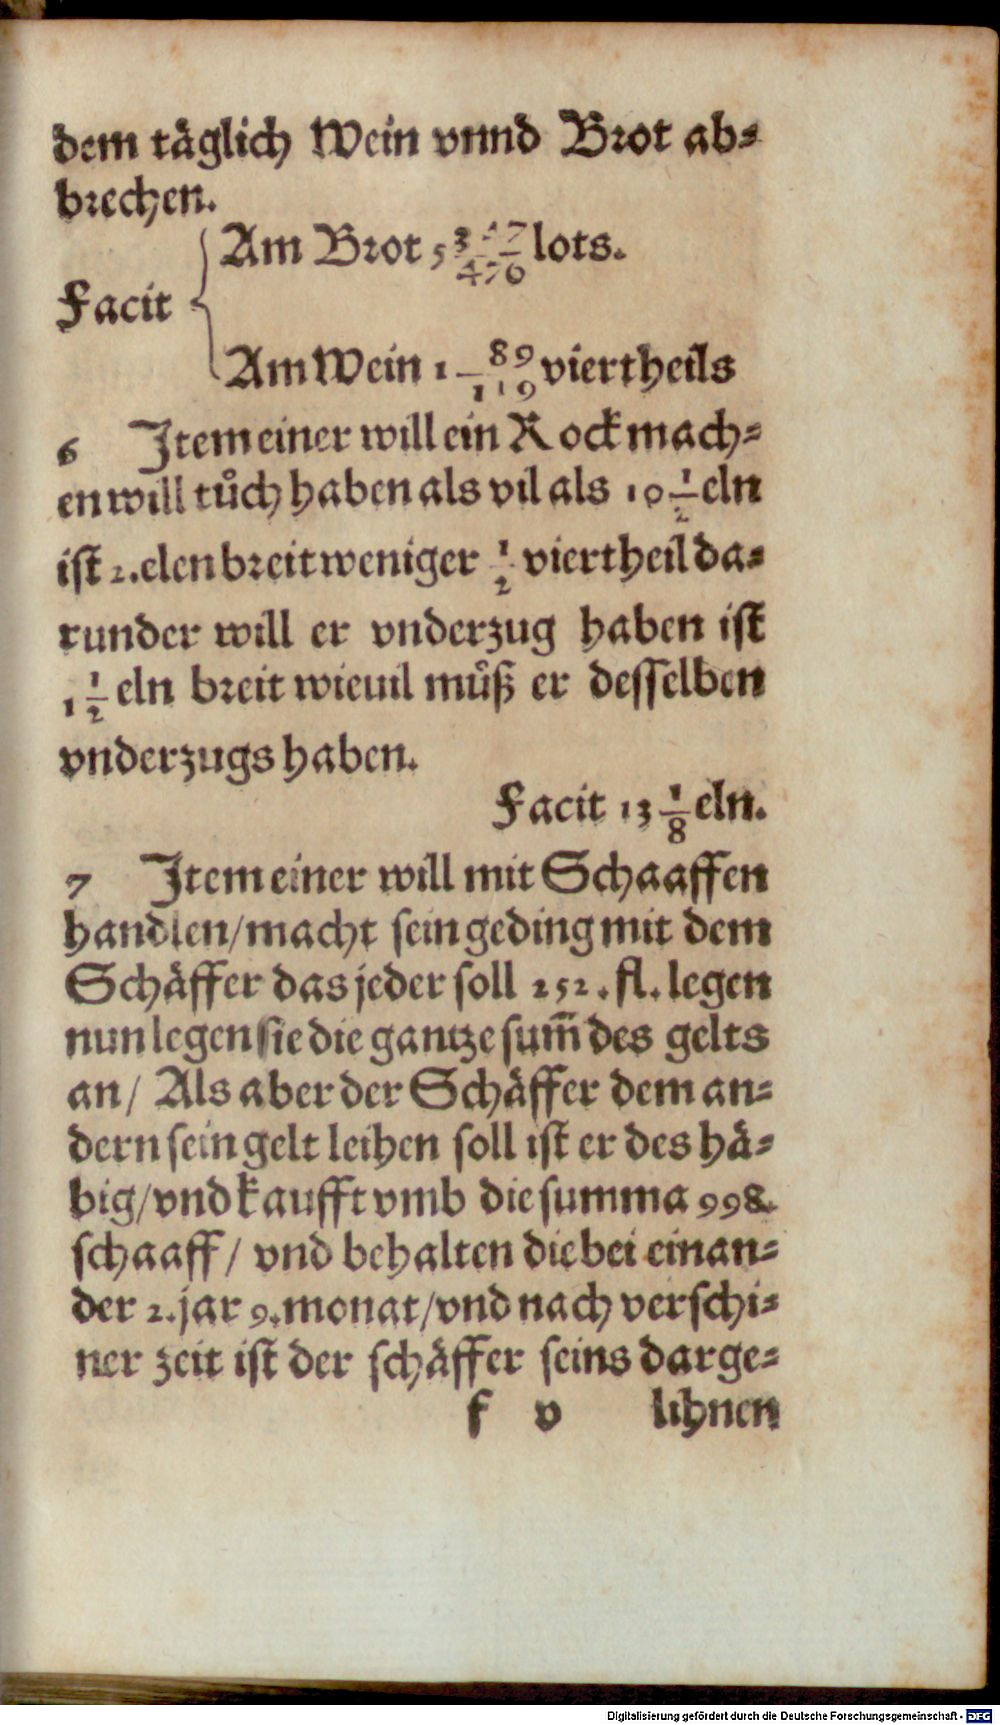 dem täglich Wein vnnd Brot ab⸗
brechen.
Am Brot 53 47/476 lots.
Facit
Am Wein 1 89/119 viertheils
6 Item einer will ein Rock mach⸗
en will tůch haben als vil als 10 1/2 eln
ist 2. elen breit weniger 1/2 viertheil da⸗
runder will er vnderzug haben ist
1 1/2 eln breit wieuil můß er desselben
vnderzugs haben.
Facit 13 1/8 eln.
7 Item einer will mit Schaaffen
handlen/macht sein geding mit dem
Schäffer das jeder soll 252. fl. legen
nun legen sie die gantze sum̃ des gelts
an/ Als aber der Schäffer dem an⸗
dern sein gelt leihen soll ist er des hä⸗
big/vnd kaufft vmb die summa 998.
schaaff/ vnd behalten die bei einan⸗
der 2. jar 9. monat/vnd nach verschi⸗
ner zeit ist der schäffer seins darge⸗
f v lihnen
Digitalisierung gefördert durch die Deutsche Forschungsgemeinschaft - DFG